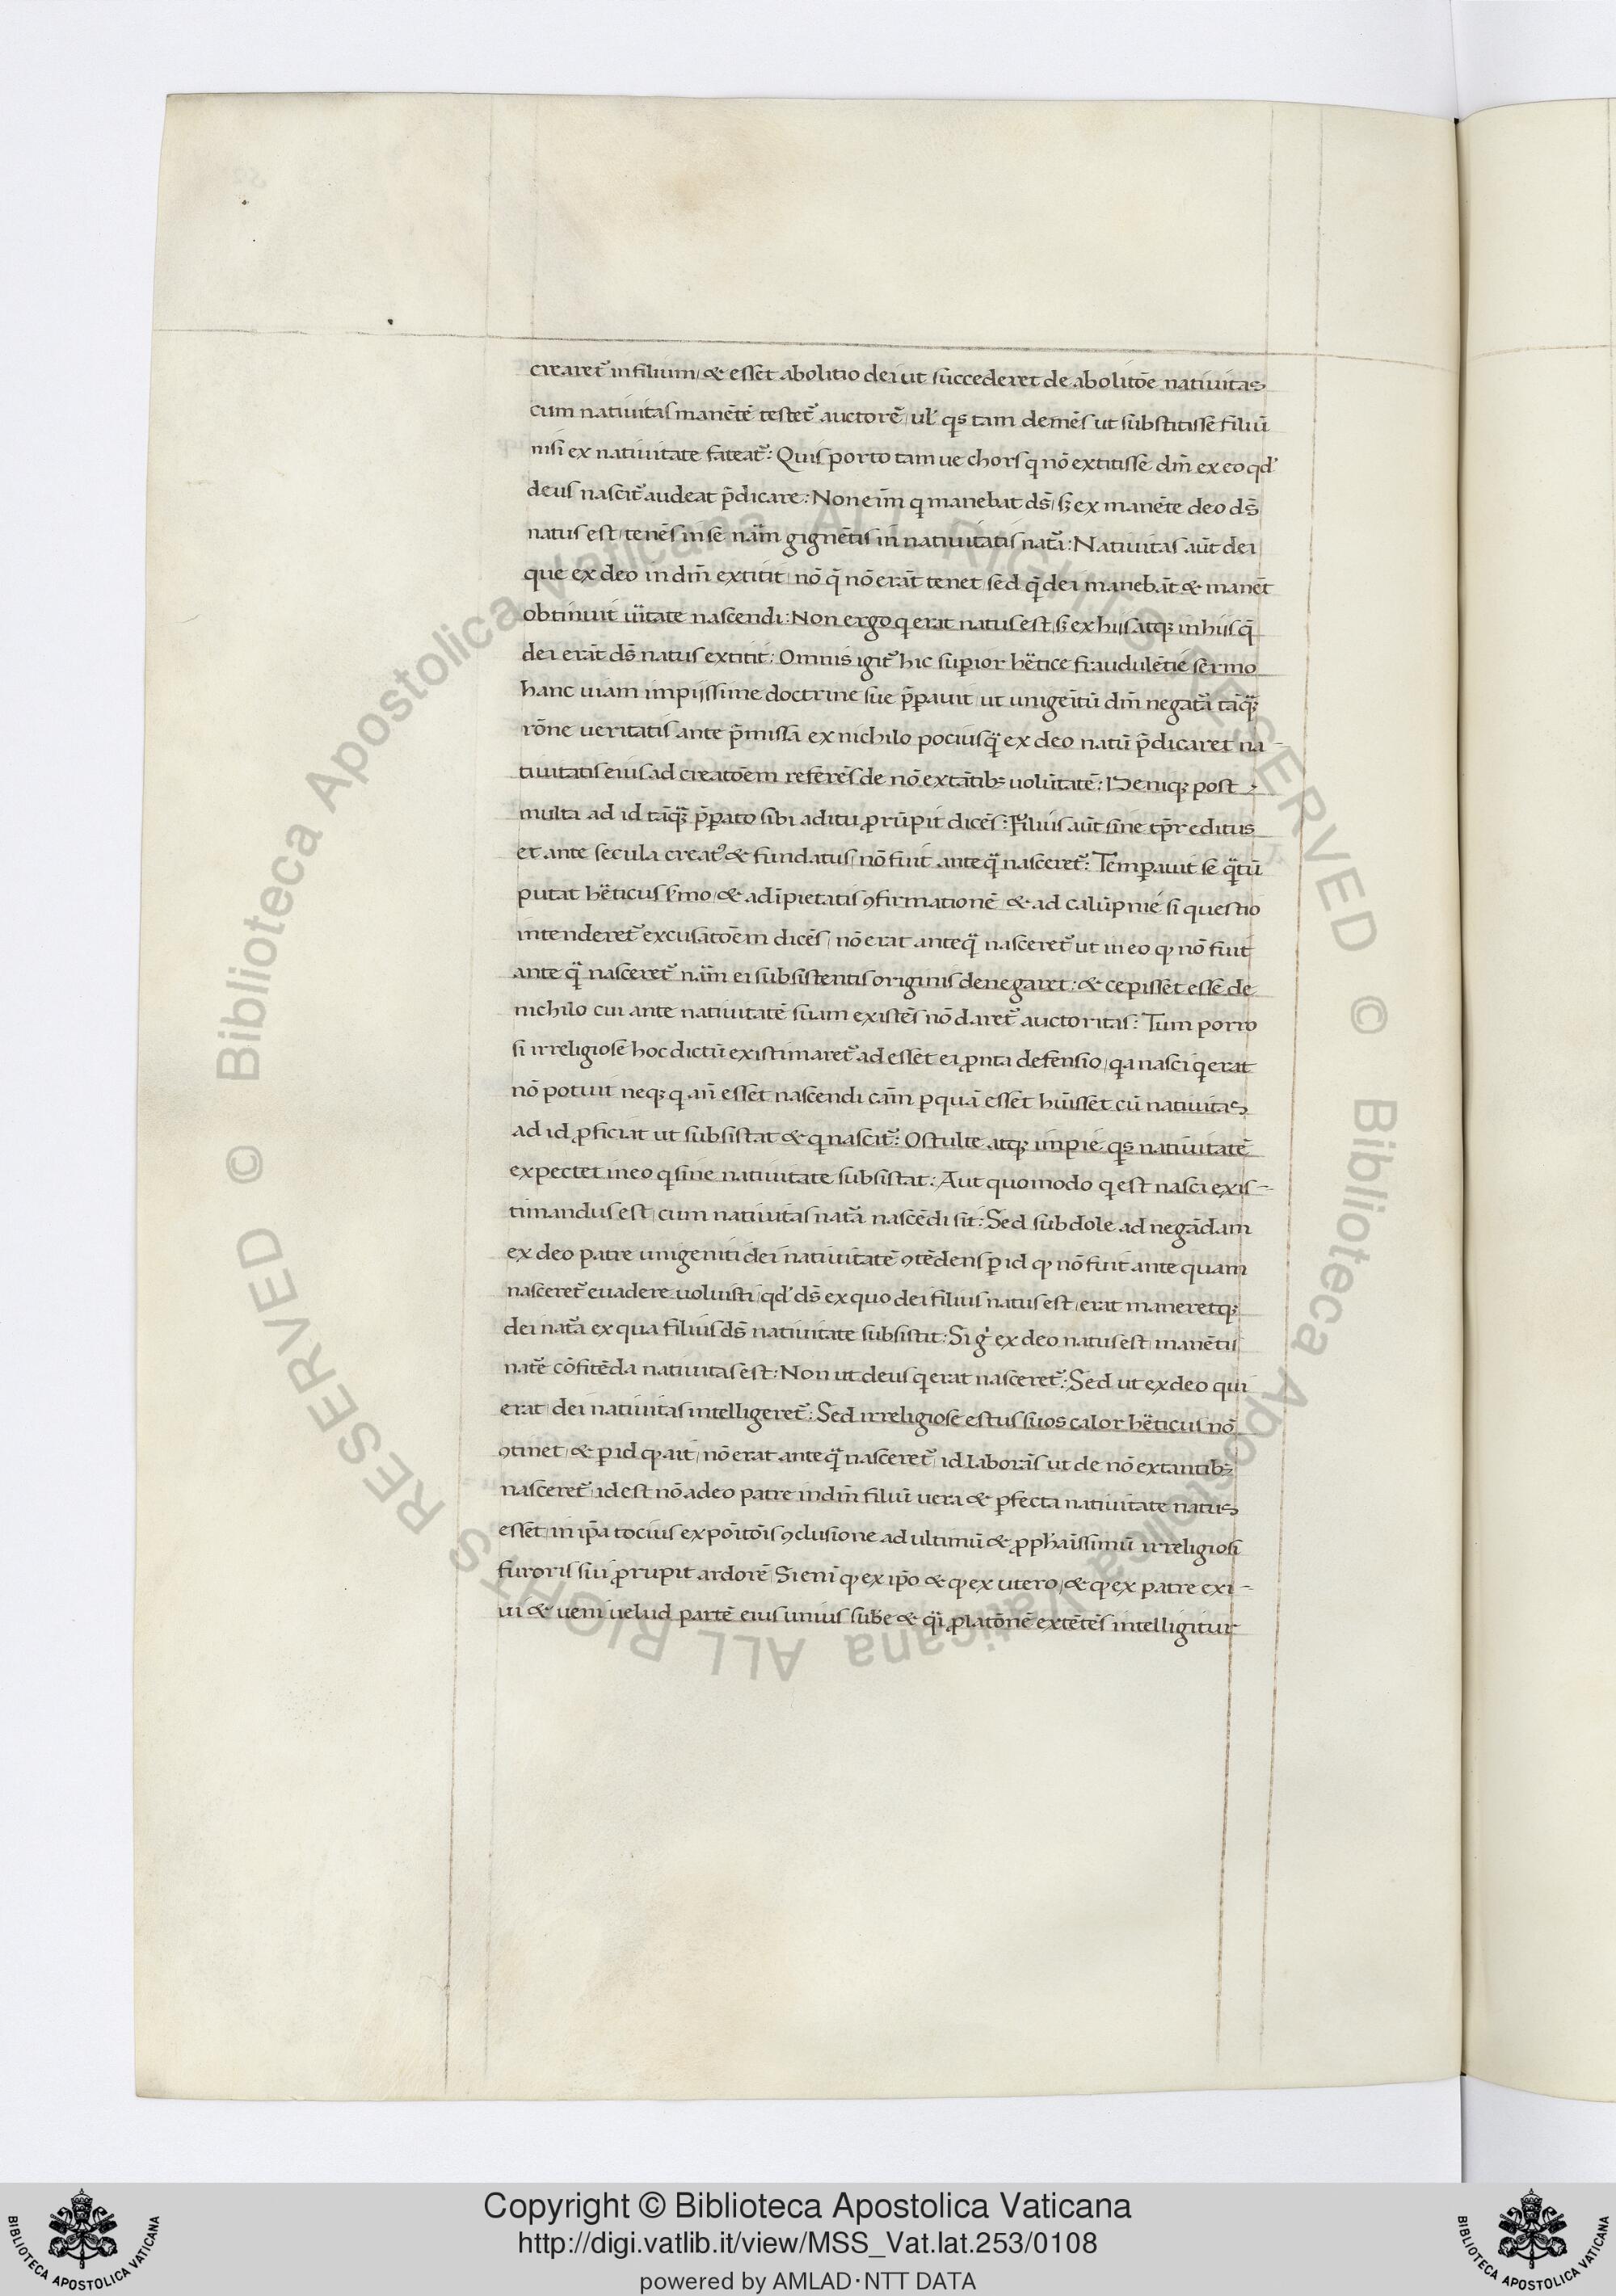 crearet᷑ in filium / & esset abolitio dei ut succederet de abolitōe natiuitas
cum natiuitas manētē testet᷑ auctorē / ul' qͥs tam demēs ut substitisse filiū
nisi ex natiuitate fateat᷑: Quis porro tam ue chors q nō extitisse dm̄ ex eo qd'
deus nascit᷑ audeat p̄dicare: Non eīm q manebat ds̄ / sꝫ ex manēte deo ds̄
natus est / tenēs in se nām gignētis in natiuitatis nat᷑a: Natiuitas aūt dei
que ex deo in dm̄ extitit / nō q̄ nō erāt tenet / sed q̄ dei manebāt & manēt
obtinuit uītate nascendi: Non ergo q erat natus est / sꝫ ex hijs atqꝫ in hijs q̄
dei erāt ds̄ natus extitit: Omnis igit᷑ hic superior hētice fraudulētie sermo
hanc uiam impijssime doctrine sue p̄parauit / ut unigenitū dm̄ negat᷑a tāq̄ꝫ
rōne ueritatis ante p̄missa ex nichilo pocius q̄ ex deo natū p̄dicaret na-
tiuitatis eius ad creatōem referēs de nō extātibꝫ uolūtatē: Deniqꝫ post
multa ad id tāq̄ꝫ p̄parato sibi aditu ꝓrūpit dicēs: Filius aūt sine tp̄r editus
et ante secula creatꝰ & fundatus / nō fuit ante q̄ nasceret᷑: Temperauit se q̄tū
putat hēticus s̄mo / & ad īpietatis ꝯfirmationē / & ad calūpnie si questio
intenderet᷑ excusatōem dicēs / nō erat anteq̄ nasceret᷑ ut in eo ꝙ nō fuit
ante q̄ nasceret᷑ nām ei subsistentis originis denegaret: & cepisset esse de
nichilo cui ante natiuitatē suam existēs nō daret᷑ auctoritas: Tum porro
si irreligiose hoc dictū existimaret᷑ ad esset ei ꝓnta defensio / qa nasci q erat
nō potuit neqꝫ q an̄ esset nascendi cām ꝑ quā esset hūisset cū natiuitas
ad id ꝓficiat ut subsistat & q nascit᷑: O stulte atqꝫ impie qͥs natiuitatē
expectet in eo q sine natiuitate subsistat: Aut quomodo q est nasci exis-
timandus est / cum natiuitas nat᷑a nascēdi sit: Sed subdole ad negādam
ex deo patre unigeniti dei natiuitatē ꝯtēdens ꝑ id ꝙ nō fuit ante quam
nasceret᷑ euadere uoluisti / qd' ds̄ ex quo dei filius natus est / erat maneretqꝫ
dei nat᷑a ex qua filius ds̄ natiuitate subsistit: Si gͥ ex deo natus est / manētis
nat᷑e cōfitēda natiuitas est: Non ut deus q erat nasceret᷑: Sed ut ex deo qui
erat / dei natiuitas intelligeret᷑: Sed irreligiose estus suos calor hēticus nō
ꝯtinet / & ꝑ id ꝙ ait / nō erat anteq̄ nasceret᷑ / id laborās ut de nō extantibꝫ
nasceret᷑ / id est nō a deo patre in dm̄ filiū uera & ꝑfecta natiuitate natus
esset / in ip̄a tocius expōitōis ꝯclusione ad ultimū & ꝓphaīssimū irreligiosi
furoris sui ꝓrupit ardorē / Si enī ꝙ ex ip̄o & ꝙ ex utero / & ꝙ ex patre exi-
ui & ueni uelud partē eius unius sub̄e & q̄i ꝓlatōnē extētēs intelligitur
Copyright © Biblioteca Apostolica Vaticana
http://digi.vatlib.it/view/MSS_Vat.lat.253/0108
powered by AMLAD·NTT DATA
BIBLIOTECA APOSTOLICA VATICANA
BIBLIOTECA APOSTOLICA VATICANA
© Biblioteca Apostolica Vaticana ALL RIGHTS RESERVED
© Biblioteca Apostolica Vaticana ALL RIGHTS RESERVED